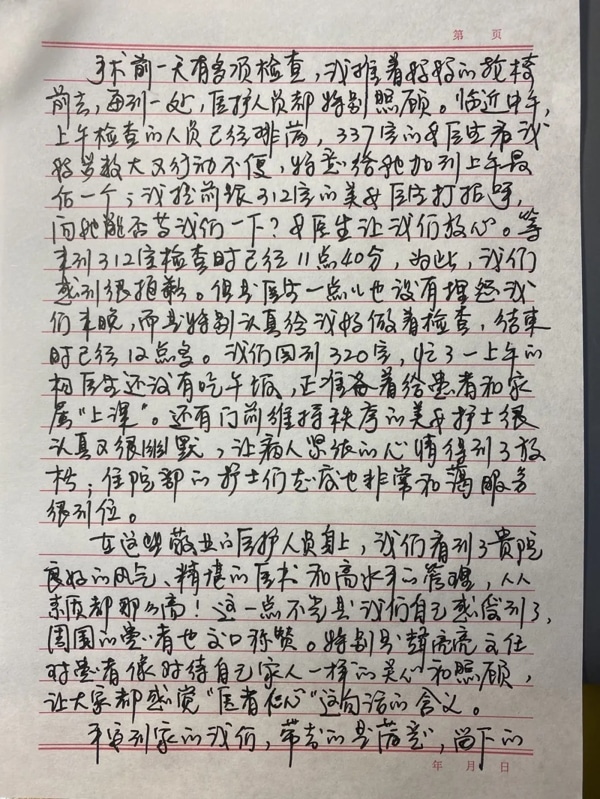 第 页
手术前一天有多项检查,我推着妈妈的轮椅
前去,每到一处,医护人员都特别照顾。临近中午,
上午检查的人员已经排满,337房的女医生看我
妈岁数大又行动不便,特意给她加到上午最
后一个;我提前跟312房的美女医生打招呼,
问她能否等我们一下?女医生让我们放心。等
来到312房检查时已经11点40分,为此,我们
感到很抱歉。但是医生一点儿也没有埋怨我
们来晚,而是特别认真给我妈做着检查,结束
时已经12点多。我们回到320房,忙了一上午的
医生还没有吃午饭,正准备着给患者和家
属“上课”。还有门前维持秩序的美女护士很
认真又很幽默,让病人紧张的心情得到了放
松;住院部的护士们态度也非常和蔼服务
很到位。
在这些敬业的医护人员身上,我们看到了贵院
良好的风气、精湛的医术和高水平的管理,人人
素质都那么高!这一点不光是我们自己感受到了,
周围的患者也交口称赞。特别是韩亮亮主任
对患者像对待自己家人一样的关心和照顾,
让大家都感觉“医者仁心”这句话的含义。
平安到家的我们,带去的是满意,留下的
年 月 日